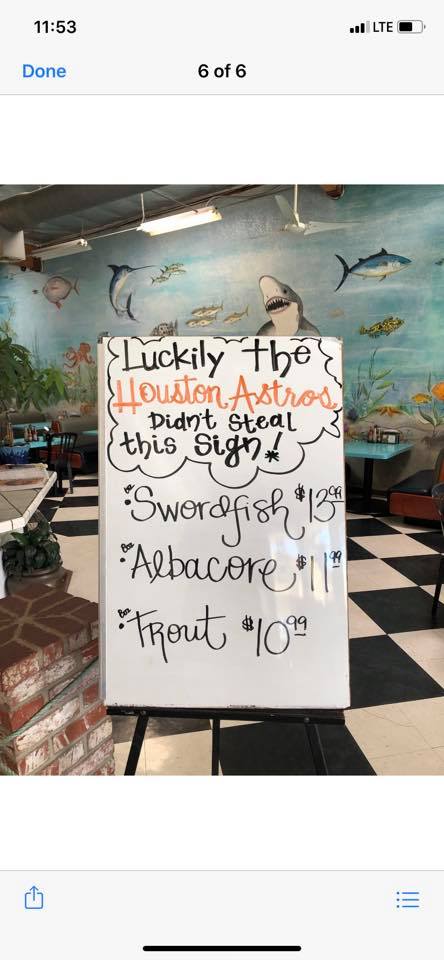 11:53
LTE
Done
6 of 6
Luckily the
Houston Astros
Didn't Steal
this Sign!*
• Swordfish $13.99
• Albacore $11.99
• Trout $10.99